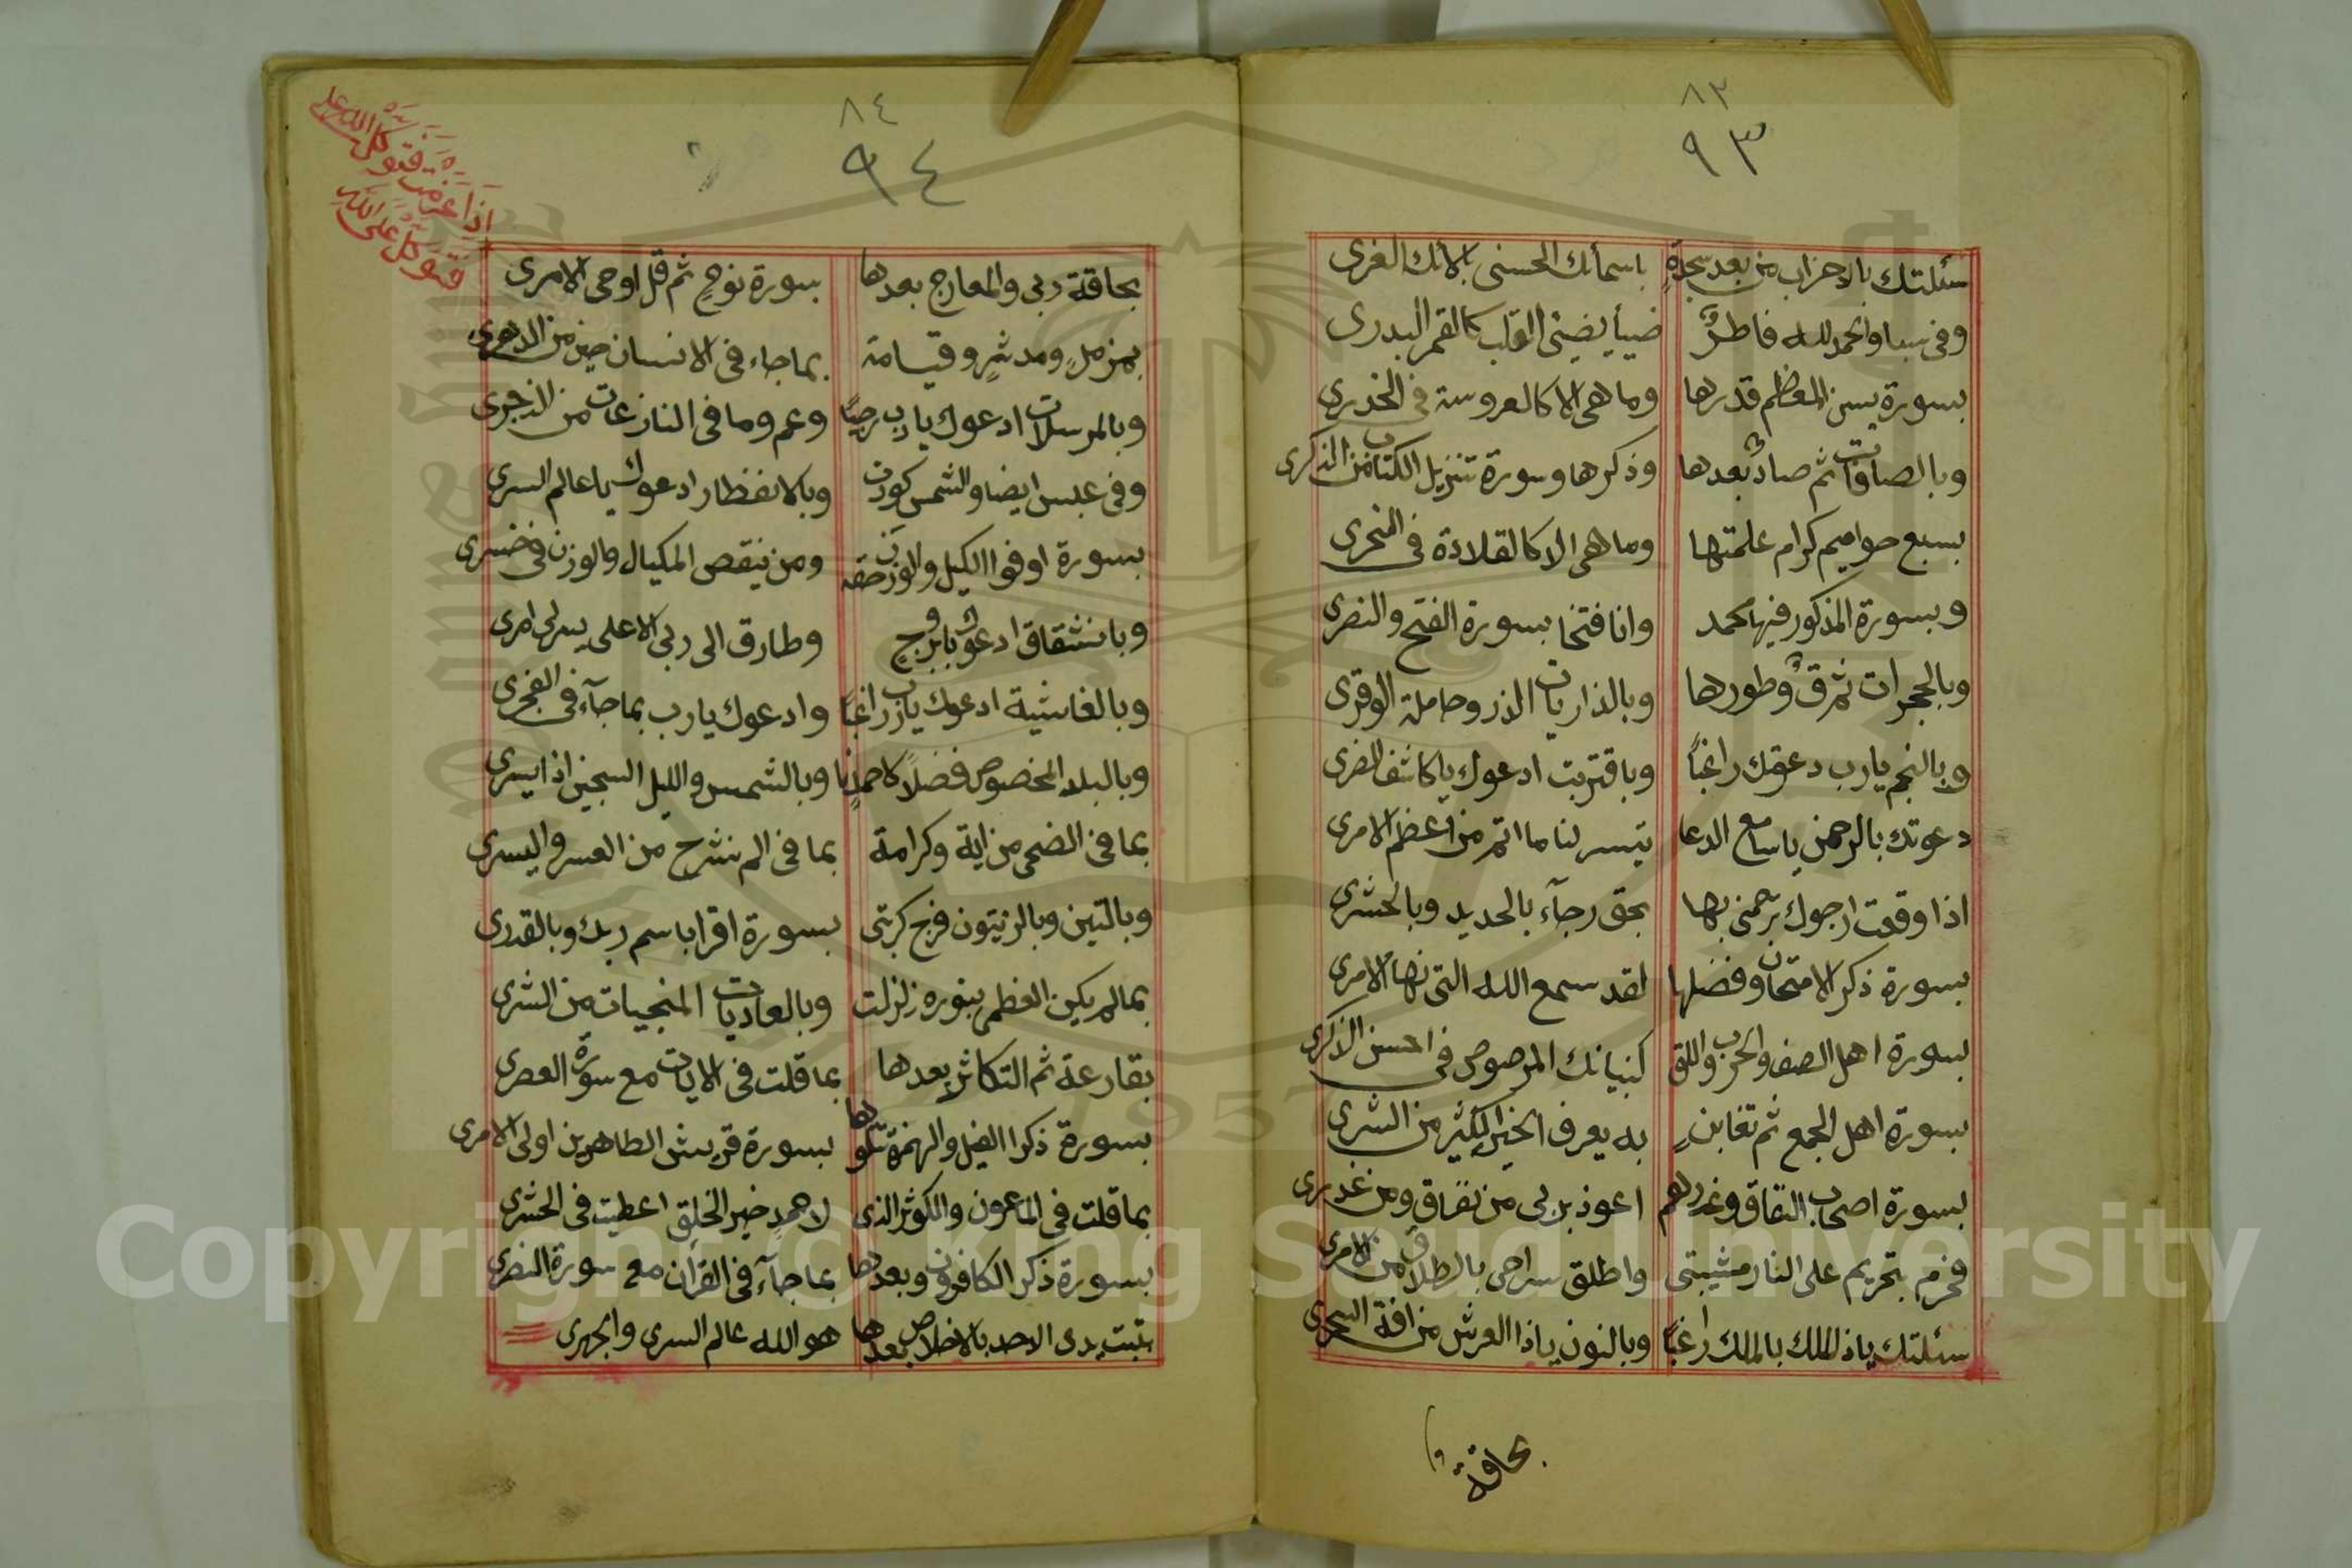 ٨٣
٩٣
سئلتك بالاحزاب من بعد سجدةٍ باسمائك الحسنى بالائك الغرى
وفى سبا والحمد لله فاطرٌ ضيأ يضيئ القلب كالقمر البدرى
بسورة يسن المعظم قدرها وما هى الا كالعروسة فى الخدرى
وبالصافات ثم صادٌ بعدها وذكرها وسورة تنزيل الكتاب من الذكرى
بسبع حواميم كرام علمتها وما هى الا كالقلادة فى النحرى
وبسورة المذكور فيها محمد وانا فتحنا بسورة الفتح والنصرى
وبالحجرات ثم قٌ وطورها وبالذاريات الذر وحاملة الوقرى
وبالنجم يارب دعوتك راغبًا وباقتربت ادعوك ياكاشف الضرى
دعوتك بالرحمن ياسامع الدعا تيسر لنا ما اتم من اعظم الامرى
اذا وقعت ارجوك ترحمنى بها بحق رجآء بالحديد وبالحشرى
بسورة ذكر الامتحان وفضلها لقد سمع الله التى نهاالامرى
بسورة اهل الصف والحرب واللق كبنيانك المرصوص فى احسن الذكرى
بسورة اهل الجمع ثم تغابنٍ به يعرف الخير الكثير من الشرى
بسورة اصحاب النفاق وغدرهم اعوذ بربى من نفاق ومن غدرى
فحرم بتحريم على النار مشيبتى واطلق سراحى بالطلاق من الامرى
سئلتك ياذ الملك بالملك راغبًا وبالنون ياذا العرش من افة السحرى
بحاقة
٨٤
٩٤
اذا عزمت فتوكل على الله
فتوكل على الله
بحاقة ربى والمعارج بعدها بسورة نوحٍ ثم قل اوحى الامرى
بمزملٍ ومدثرٍ وقيامة بما جاء فى الانسان حين من الدهرى
وبالمرسلات ادعوك يارب رجيًا وعم وما فى النازعات من الزجرى
وفى عبس ايضا والشمس كورت وبالانفطار ادعوك ياعالم السرى
بسورة اوفوا الكيل والوزن حقه ومن ينقص المكيال والوزن فى خسرى
وبانشقاق ادعوك بابروجٍ وطارق الى ربى الاعلى يسر لى امرى
وبالغاشية ادعوك يارب راغبًا وادعوك يارب بما جآء فى الفجرى
وبالبلد المخصوص فضلاً لاحمدنا وبالشمس والليل السجين اذا يسرى
بما فى الضحى من اية وكرامة بما فى الم نشرح من العسر واليسرى
وبالتين وبالزيتون فرج كربتى بسورة اقرا باسم ربك وبالقدرى
بمالم يكن العظم بنوره زلزلت وبالعاديات المنجيات من الشرى
بقارعة ثم التكاثر بعدها بما قلت فى الايات مع سورة العصرى
بسورة ذكرا الفيل والهمزة تتلوها بسورة قريش الطاهرين اولى الامرى
بما قلت فى الماعون والكوثر الذى لاحمدٍ خير الخلق اعطيت فى الحشرى
بسورة ذكر الكافرون وبعدها بما جآء فى القرأن مع سورة النصرى
بتبت يدى الاحد بالاخلاص بعدها هو الله عالم السرى والجهرى
Copyright © King Saud University
1957